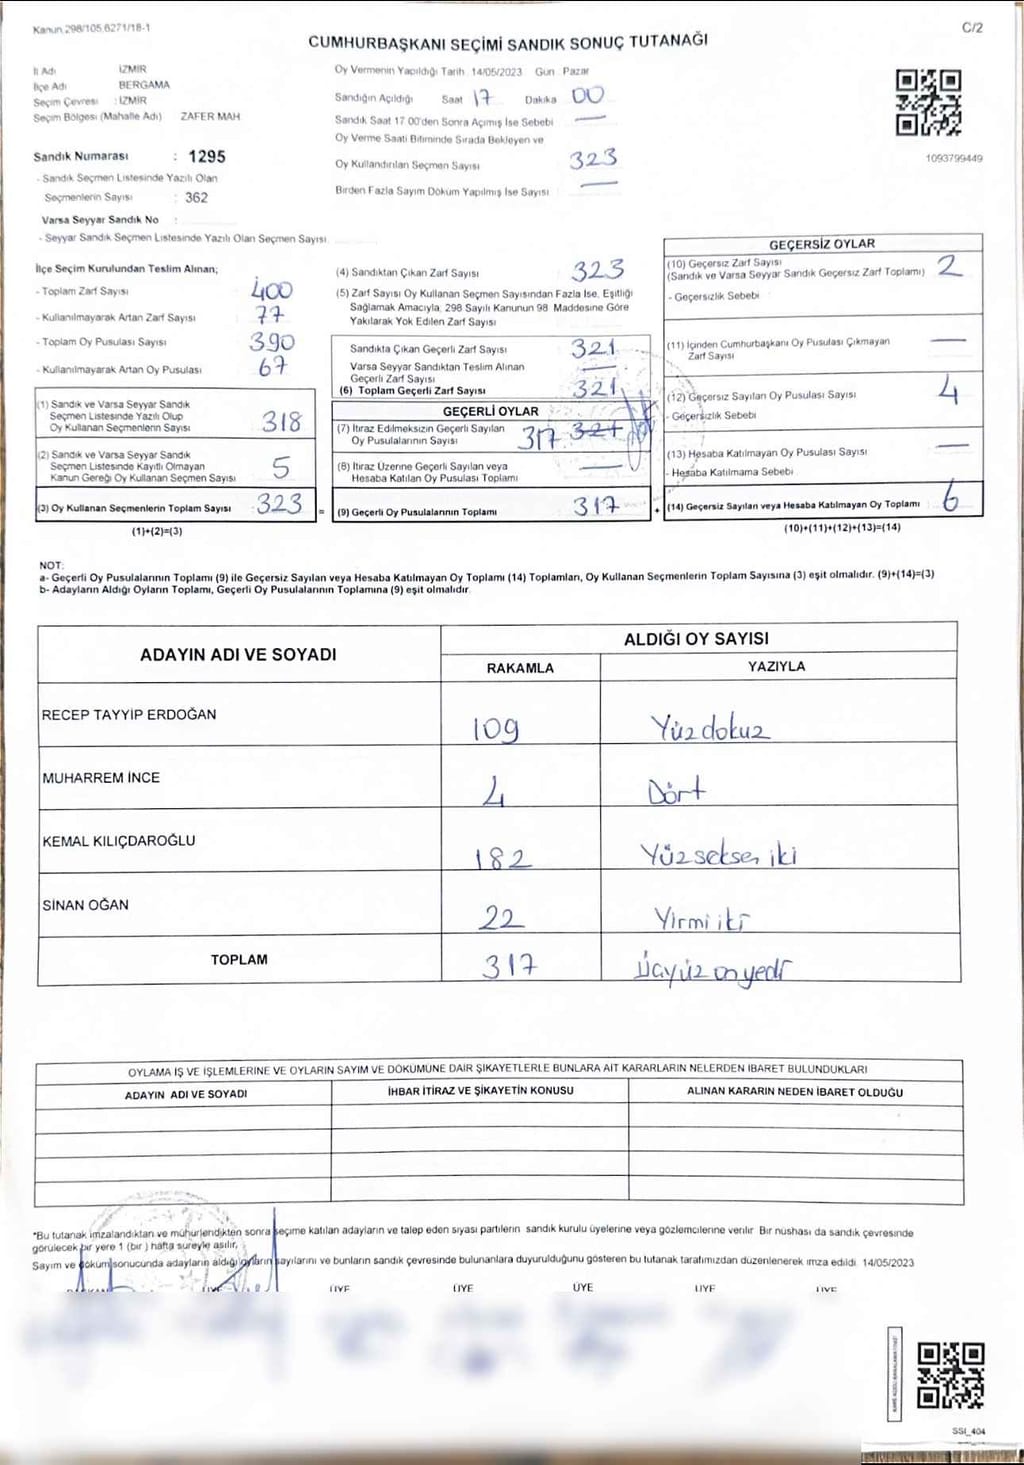 Kanun 298/105,6271/18-1
C/2
CUMHURBAŞKANI SEÇİMİ SANDIK SONUÇ TUTANAĞI
İl Adı İZMİR
İlçe Adı BERGAMA
Seçim Çevresi : İZMİR
Seçim Bölgesi (Mahalle Adı) ZAFER MAH
Sandık Numarası : 1295
- Sandık Seçmen Listesinde Yazılı Olan
Seçmenlerin Sayısı : 362
Varsa Seyyar Sandık No :
- Seyyar Sandık Seçmen Listesinde Yazılı Olan Seçmen Sayısı.
Oy Vermenin Yapıldığı Tarih 14/05/2023 Gün Pazar
Sandığın Açıldığı Saat 17 Dakika 00
Sandık Saat 17 00'den Sonra Açılmış İse Sebebi —
Oy Verme Saati Bitiminde Sırada Bekleyen ve
Oy Kullandırılan Seçmen Sayısı 323
Birden Fazla Sayım Döküm Yapılmış İse Sayısı —
1093799449
İlçe Seçim Kurulundan Teslim Alınan;
- Toplam Zarf Sayısı 400
- Kullanılmayarak Artan Zarf Sayısı 77
- Toplam Oy Pusulası Sayısı 390
- Kullanılmayarak Artan Oy Pusulası 67
(1) Sandık ve Varsa Seyyar Sandık
Seçmen Listesinde Yazılı Olup
Oy Kullanan Seçmenlerin Sayısı 318
(2) Sandık ve Varsa Seyyar Sandık
Seçmen Listesinde Kayıtlı Olmayan
Kanun Gereği Oy Kullanan Seçmen Sayısı 5
(3) Oy Kullanan Seçmenlerin Toplam Sayısı 323
(1)+(2)=(3)
(4) Sandıktan Çıkan Zarf Sayısı 323
(5) Zarf Sayısı Oy Kullanan Seçmen Sayısından Fazla İse, Eşitliği
Sağlamak Amacıyla, 298 Sayılı Kanunun 98 Maddesine Göre
Yakılarak Yok Edilen Zarf Sayısı
Sandıkta Çıkan Geçerli Zarf Sayısı 321
Varsa Seyyar Sandıktan Teslim Alınan
Geçerli Zarf Sayısı —
(6) Toplam Geçerli Zarf Sayısı 321
GEÇERLİ OYLAR
(7) İtiraz Edilmeksizin Geçerli Sayılan
Oy Pusulalarının Sayısı 317 321
(8) İtiraz Üzerine Geçerli Sayılan veya
Hesaba Katılan Oy Pusulası Toplamı —
= (9) Geçerli Oy Pusulalarının Toplamı 317
GEÇERSİZ OYLAR
(10) Geçersiz Zarf Sayısı
(Sandık ve Varsa Seyyar Sandık Geçersiz Zarf Toplamı) 2
- Geçersizlik Sebebi
(11) İçinden Cumhurbaşkanı Oy Pusulası Çıkmayan
Zarf Sayısı —
(12) Geçersiz Sayılan Oy Pusulası Sayısı 4
- Geçersizlik Sebebi
(13) Hesaba Katılmayan Oy Pusulası Sayısı —
- Hesaba Katılmama Sebebi
+ (14) Geçersiz Sayılan veya Hesaba Katılmayan Oy Toplamı 6
(10)+(11)+(12)+(13)=(14)
NOT:
a- Geçerli Oy Pusulalarının Toplamı (9) ile Geçersiz Sayılan veya Hesaba Katılmayan Oy Toplamı (14) Toplamları, Oy Kullanan Seçmenlerin Toplam Sayısına (3) eşit olmalıdır. (9)+(14)=(3)
b- Adayların Aldığı Oyların Toplamı, Geçerli Oy Pusulalarının Toplamına (9) eşit olmalıdır
ADAYIN ADI VE SOYADI ALDIĞI OY SAYISI
RAKAMLA YAZIYLA
RECEP TAYYİP ERDOĞAN 109 Yüzdokuz
MUHARREM İNCE 4 Dört
KEMAL KILIÇDAROĞLU 182 Yüzseksen iki
SİNAN OĞAN 22 Yirmi iki
TOPLAM 317 Üçyüz onyedi
OYLAMA İŞ VE İŞLEMLERİNE VE OYLARIN SAYIM VE DÖKÜMÜNE DAİR ŞİKAYETLERLE BUNLARA AİT KARARLARIN NELERDEN İBARET BULUNDUKLARI
ADAYIN ADI VE SOYADI İHBAR İTİRAZ VE ŞİKAYETİN KONUSU ALINAN KARARIN NEDEN İBARET OLDUĞU
*Bu tutanak imzalandıktan ve mühürlendikten sonra seçime katılan adayların ve talep eden siyasi partilerin sandık kurulu üyelerine veya gözlemcilerine verilir Bir nüshası da sandık çevresinde
görülecek bir yere 1 (bir ) hafta süreyle asılır.
Sayım ve döküm sonucunda adayların aldığı oyların sayılarını ve bunların sandık çevresinde bulunanlara duyurulduğunu gösteren bu tutanak tarafımızdan düzenlenerek imza edildi 14/05/2023
ÜYE ÜYE ÜYE ÜYE ÜYE ÜYE
SSI_404